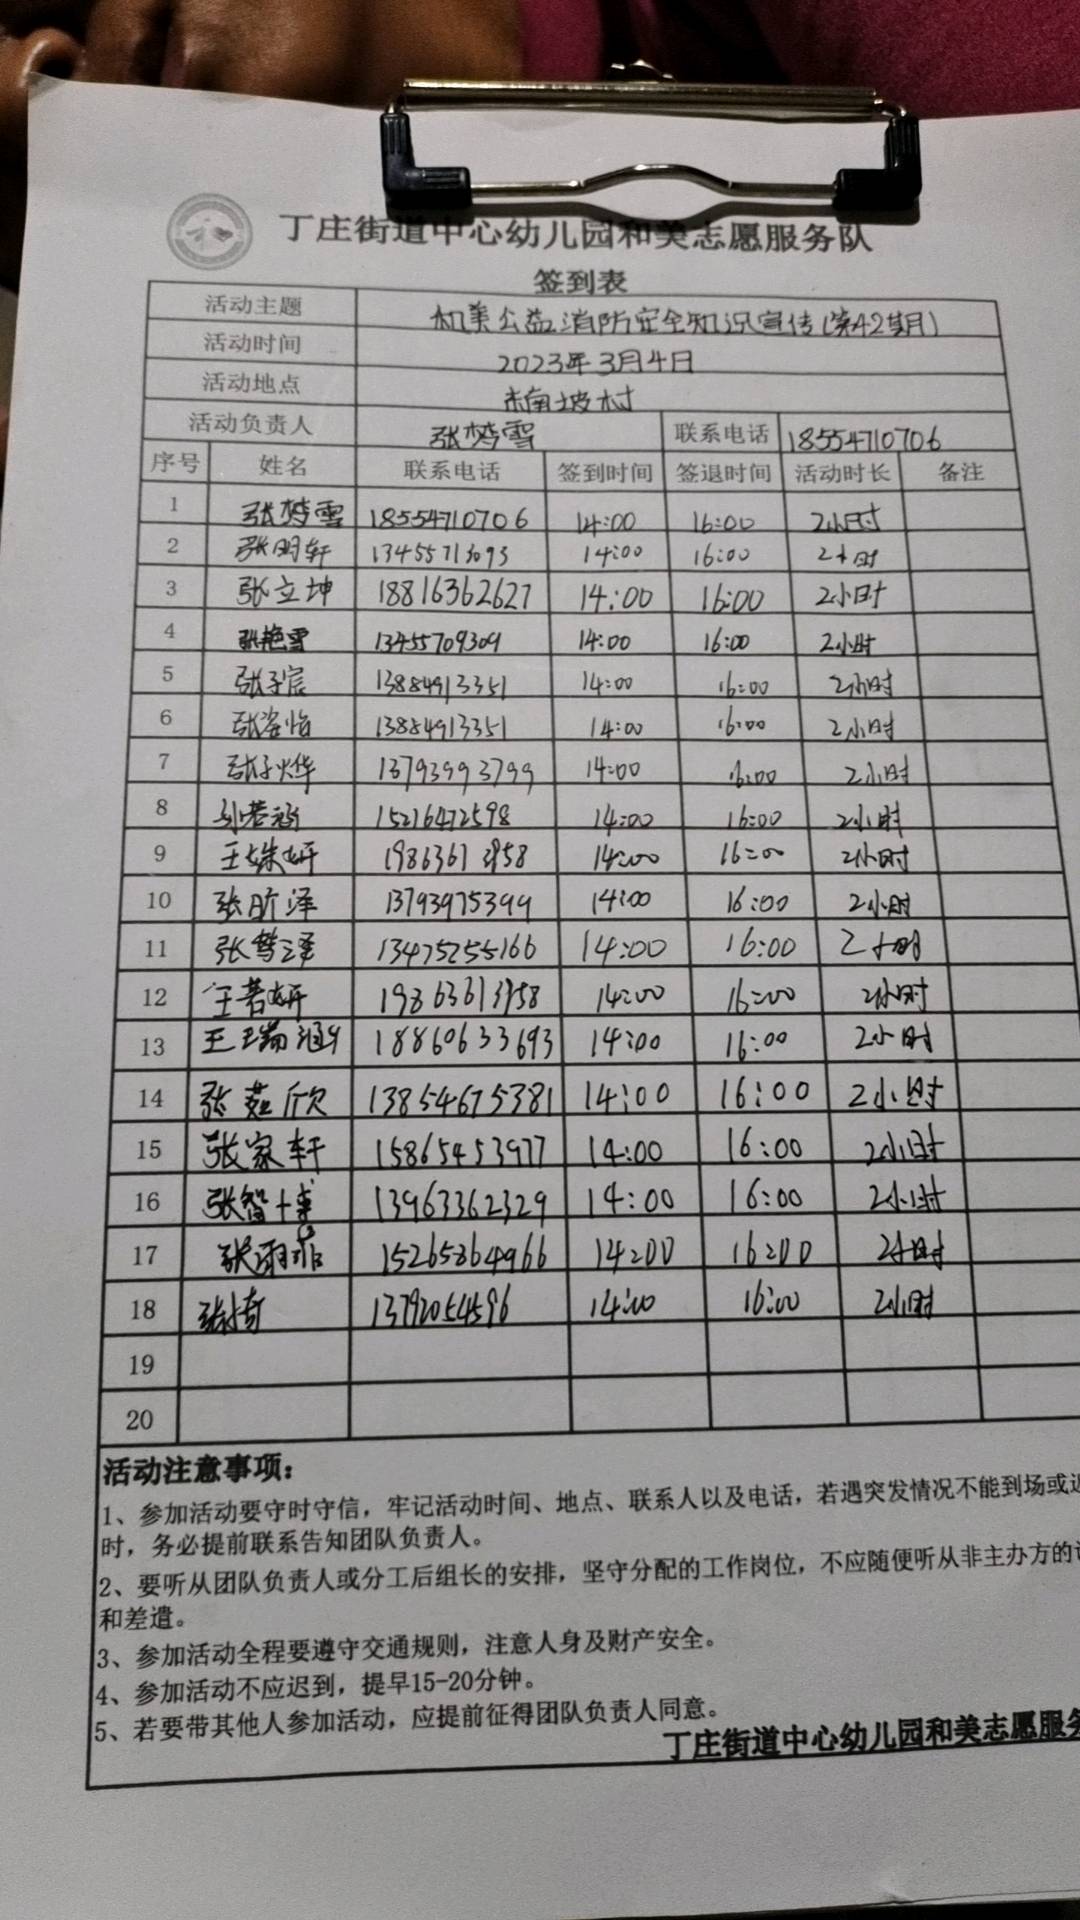 丁庄街道中心幼儿园和美志愿服务队
签到表
活动主题 和美公益消防安全知识宣传(第42期)
活动时间 2023年3月4日
活动地点 南坡村
活动负责人 张梦雪 联系电话 18554710706
序号 姓名 联系电话 签到时间 签退时间 活动时长 备注
1 张梦雪 18554710706 14:00 16:00 2小时
2 张明轩 13455713093 14:00 16:00 2小时
3 张立坤 18816362627 14:00 16:00 2小时
4 张艳雪 13455709309 14:00 16:00 2小时
5 张子宸 13884913351 14:00 16:00 2小时
6 张姿怡 13854913351 14:00 16:00 2小时
7 张子烨 13793993799 14:00 16:00 2小时
8 孙若涵 15216472598 14:00 16:00 2小时
9 王姝妍 19863613958 14:00 16:00 2小时
10 张昕泽 13793975399 14:00 16:00 2小时
11 张梦泽 13475255166 14:00 16:00 2小时
12 王若妍 19863613958 14:00 16:00 2小时
13 王瑞涵 18860633693 14:00 16:00 2小时
14 张 欣 13854675381 14:00 16:00 2小时
15 张家轩 15865453977 14:00 16:00 2小时
16 张智博 13963362329 14:00 16:00 2小时
17 张雨菲 15265864966 14:00 16:00 2小时
18 张琦 13792054596 14:00 16:00 2小时
19
20
活动注意事项:
1、参加活动要守时守信，牢记活动时间、地点、联系人以及电话，若遇突发情况不能到场或迟
时，务必提前联系告知团队负责人。
2、要听从团队负责人或分工后组长的安排，坚守分配的工作岗位，不应随便听从非主办方的
和差遣。
3、参加活动全程要遵守交通规则，注意人身及财产安全。
4、参加活动不应迟到，提早15-20分钟。
5、若要带其他人参加活动，应提前征得团队负责人同意。
丁庄街道中心幼儿园和美志愿服务